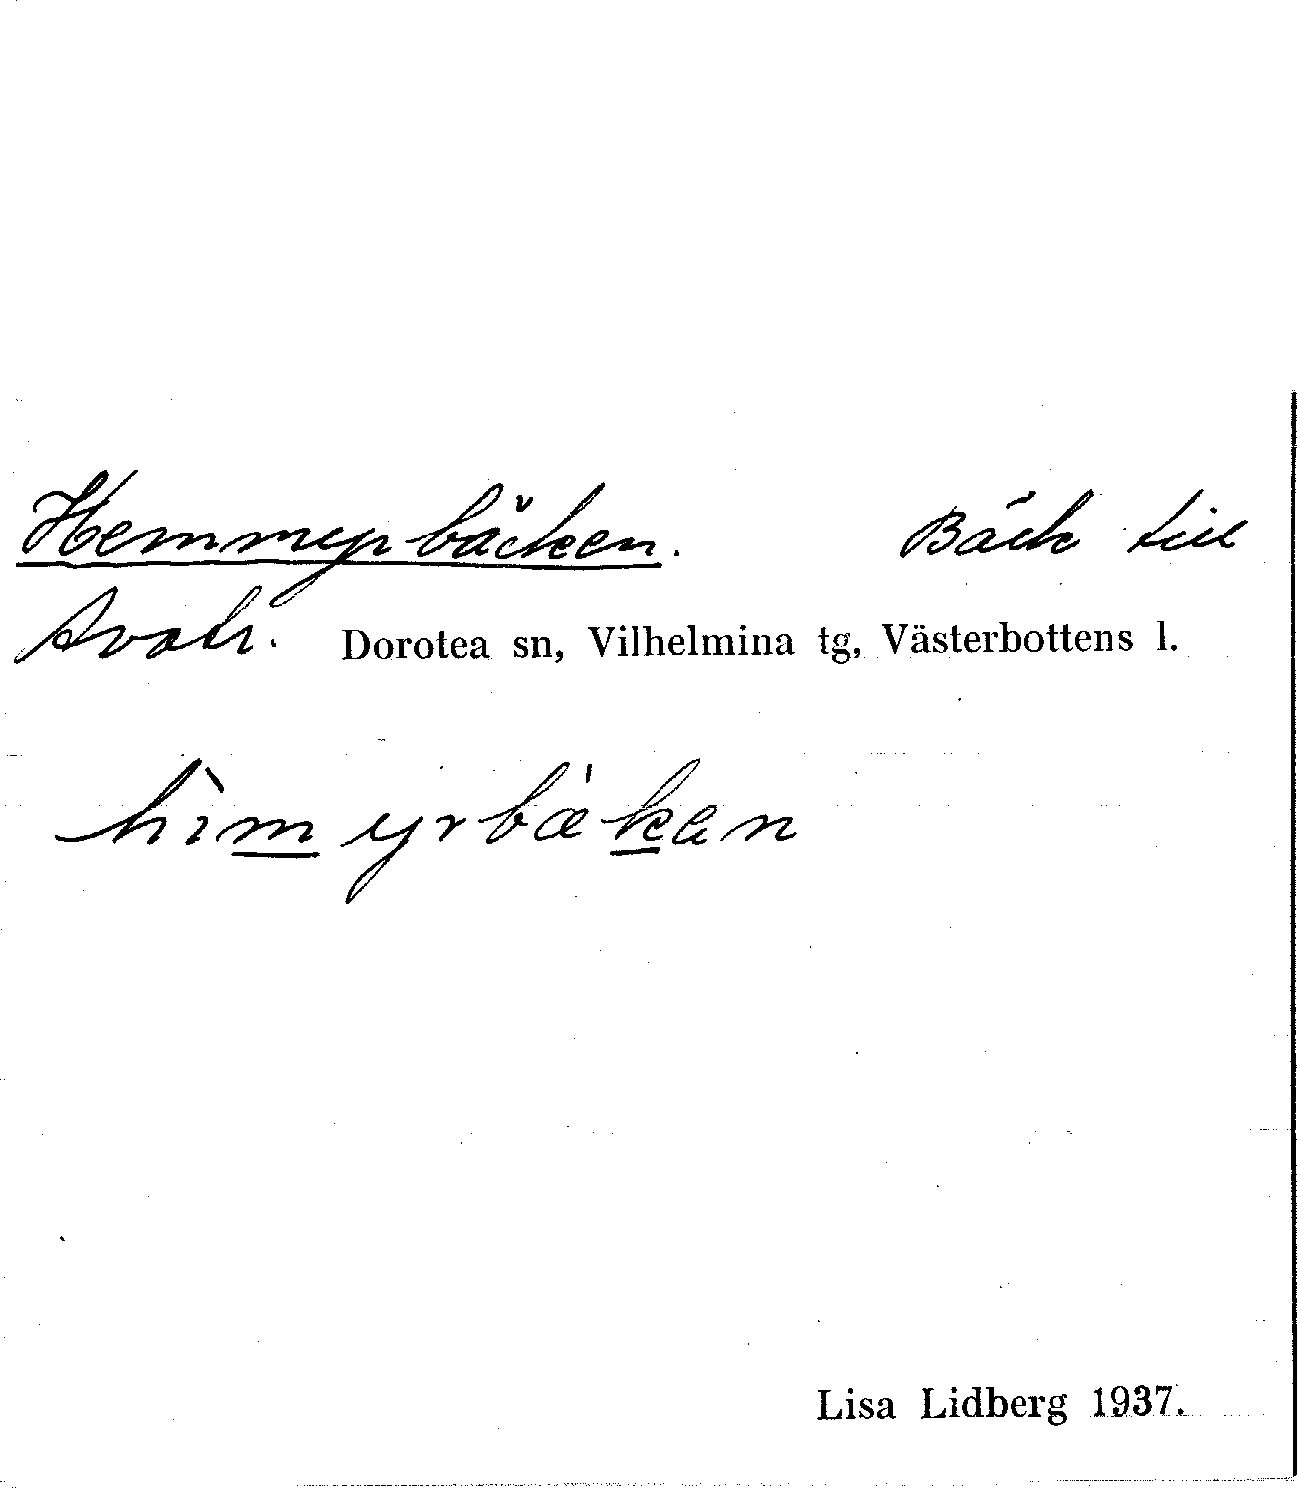 Hemmyrbäcken. Bäck till
Avatr. Dorotea sn, Vilhelmina tg, Västerbottens l.
hìmyrbæ'ken
Lisa Lidberg 1937.